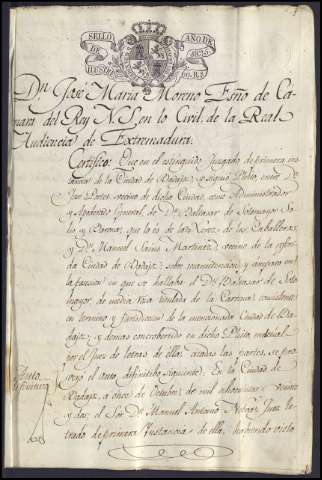 SELLO AÑO DE
DE
ILUSTRES 60. R.S
Dn. José Maria Moreno Esño de Ca-
mara del Rey N.S. en lo Civil de la Real
Audiencia de Extremadura.
Certifico: Que en el estinguido Juzgado de primera ins-
tancia de la Ciudad de Badajoz, se siguió Pleito entre Dn
Juan vecino de dicha Ciudad, como Administrador
y Apoderado General, de Dn Baltasar de Sotomayor
y que lo es de la de Xerez de los Caballeros,
y Dn Manuel Sainz Martinez, vecino de la referi-
da Ciudad de Badajoz, sobre manutencion y amparo en
la posesion en que se hallaba el Dn Baltasar de Soto-
mayor, de media titulada de la consistente
en termino y jurisdiccion de la mencionada Ciudad de Ba-
dajoz, y demas concerniente en dicho Pleito, en el cual
por el Juez de letras de ella, citadas las partes, se pro-
veyó el auto definitibo siguiente. En la Ciudad de
Auto definitivo
Badajoz a once de Octubre de mil ochocientos veinte
y dos, el Sor Dn Manuel Antonio Juez le-
trado de primera Instancia de ella, habiendo visto